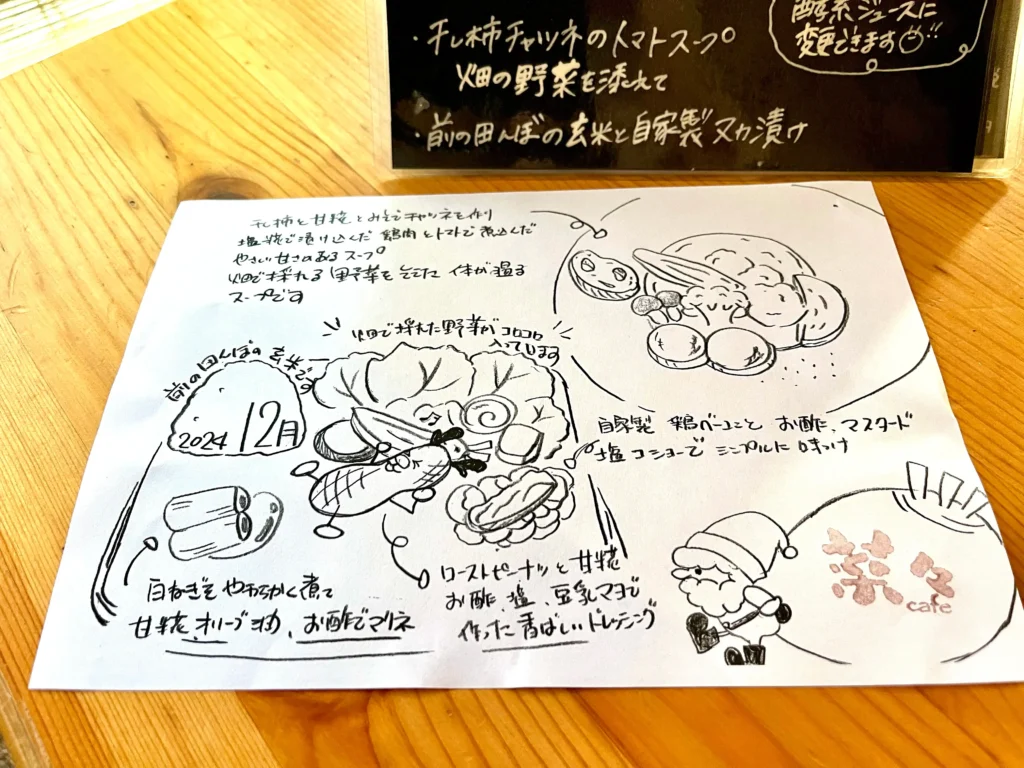 酵素ジュースに
変更できます
・干し柿チャツネのトマトスープ
畑の野菜を添えて
・前の田んぼの玄米と自家製ヌカ漬け
干し柿と甘糀とみそでチャツネを作り
塩糀で漬け込んだ 鶏肉とトマトで煮込んだ
やさしい甘さのあるスープ
畑で採れる野菜を添えた 体が温る
スープです
畑で採れた野菜がコロコロ
入っています
前の田んぼの玄米
2024 12月
自家製 鶏ベーコンと お酢、マスタード
塩コショーで シンプルに味つけ
白ねぎを やわらかく煮て
甘糀、オリーブオイル、お酢でマリネ
ローストピーナッツと甘糀
お酢、塩、豆乳マヨで
作った 香ばしいドレッシング
菜々
cafe